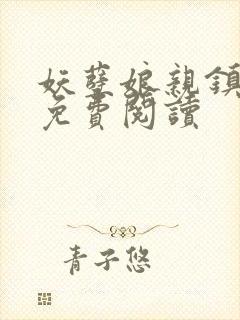 妖孽娘親鎮
免費閱讀
青子悠